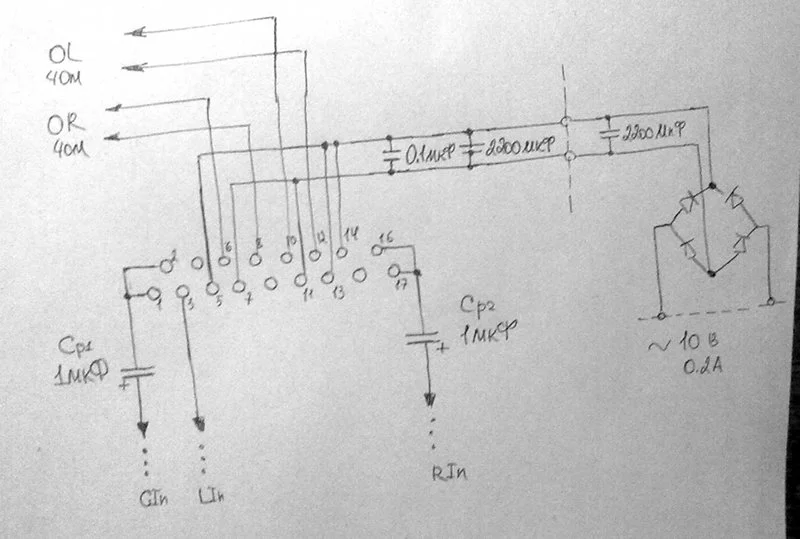 OL
40м
OR
40м
0.1мкФ
2200мкФ
2200мкФ
2
6
8
10
12
14
16
1
3
5
7
11
13
17
Ср1
1мкФ
+
Ср2
1мкФ
+
~ 10 В
0.2А
GIn
LIn
RIn